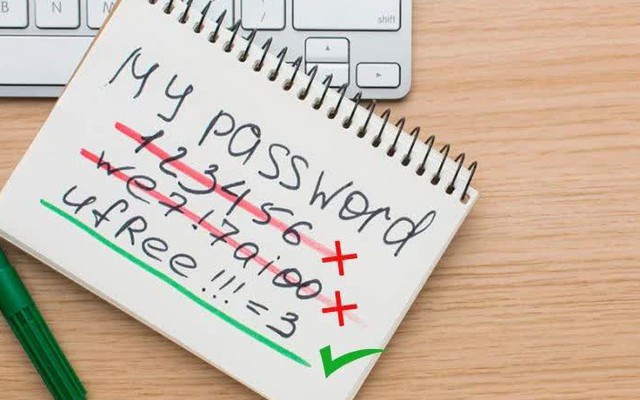 B N M
shift
My password
123456
we7!7aioo
ufRee!!!=3